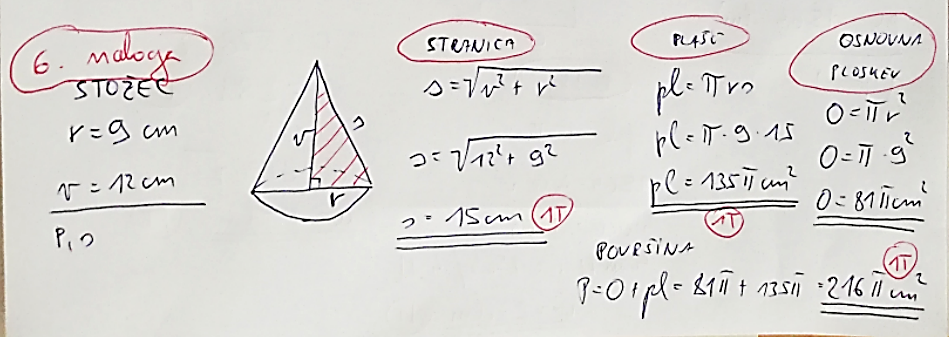 6. naloga
STOŽEC
r = 9 cm
v = 12 cm
P, s
v
s
r
STRANICA
s = √v² + r²
s = √12² + 9²
s = 15 cm 1T
PLAŠČ
pl = π r s
pl = π · 9 · 15
pl = 135 π cm²
1T
OSNOVNA
PLOSKEV
O = π r²
O = π · 9²
O = 81 π cm²
POVRŠINA
1T
P = O + pl = 81 π + 135 π = 216 π cm²